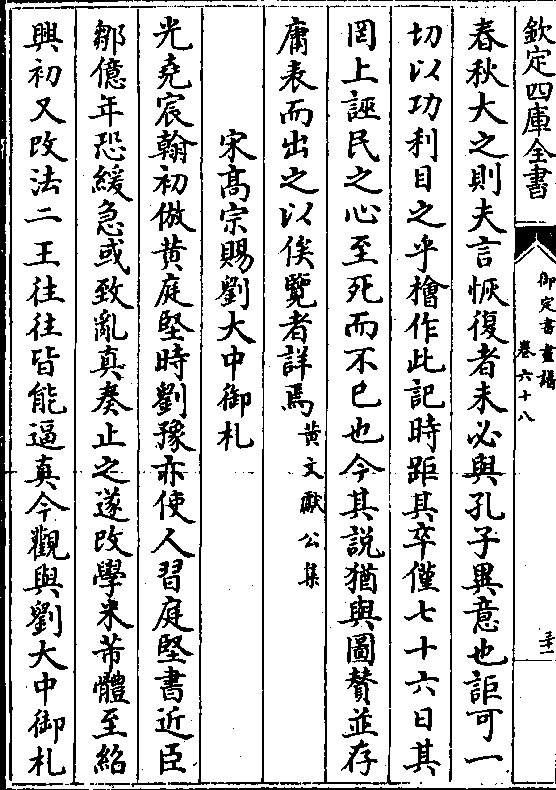 欽定四庫全書
御定書畫譜
卷六十八
春秋大之則夫言恢復者未必與孔子異意也詎可一
切以功利目之乎檜作此記時距其卒僅七十六日其
罔上誣民之心至死而不已也今其說猶與圖贊並存
庸表而出之以俟覽者詳焉黄文獻公集
宋髙宗賜劉大中御札
光堯宸翰初倣黄庭堅時劉豫亦使人習庭堅書近臣
鄒億年恐緩急或致亂真奏止之遂改學米芾體至紹
興初又改法二王往往皆能逼真今觀與劉大中御札